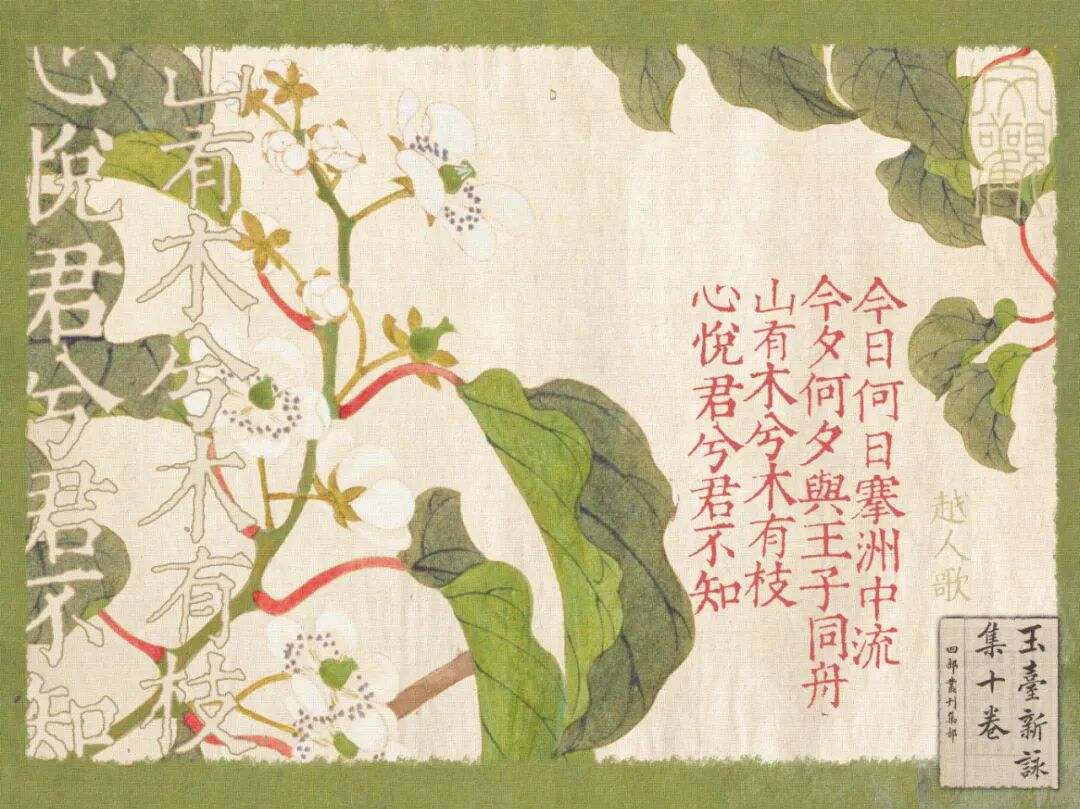 文觀
越人歌
今日何日搴洲中流
今夕何夕與王子同舟
山有木兮木有枝
心悅君兮君不知
玉臺新詠
集十卷
四部叢刊集部
山有木兮木有枝
心悅君兮君不知